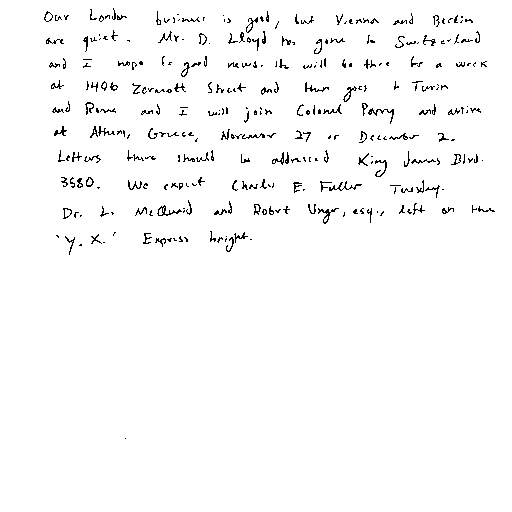 Our London business is good, but Vienna and Berlin
are quiet. Mr. D. Lloyd has gone to Switzerland
and I hope for good news. He will be there for a week
at 1496 Zermott Street and then goes to Turin
and Rome and will join Colonel Parry and arrive
at Athens, Greece, November 27 or December 2.
Letters there should be addressed King James Blvd.
3580. We expect Charles E. Fuller Tuesday.
Dr. L. McQuaid and Robert Unger, esq., left on the
'Y. X.' Express tonight.